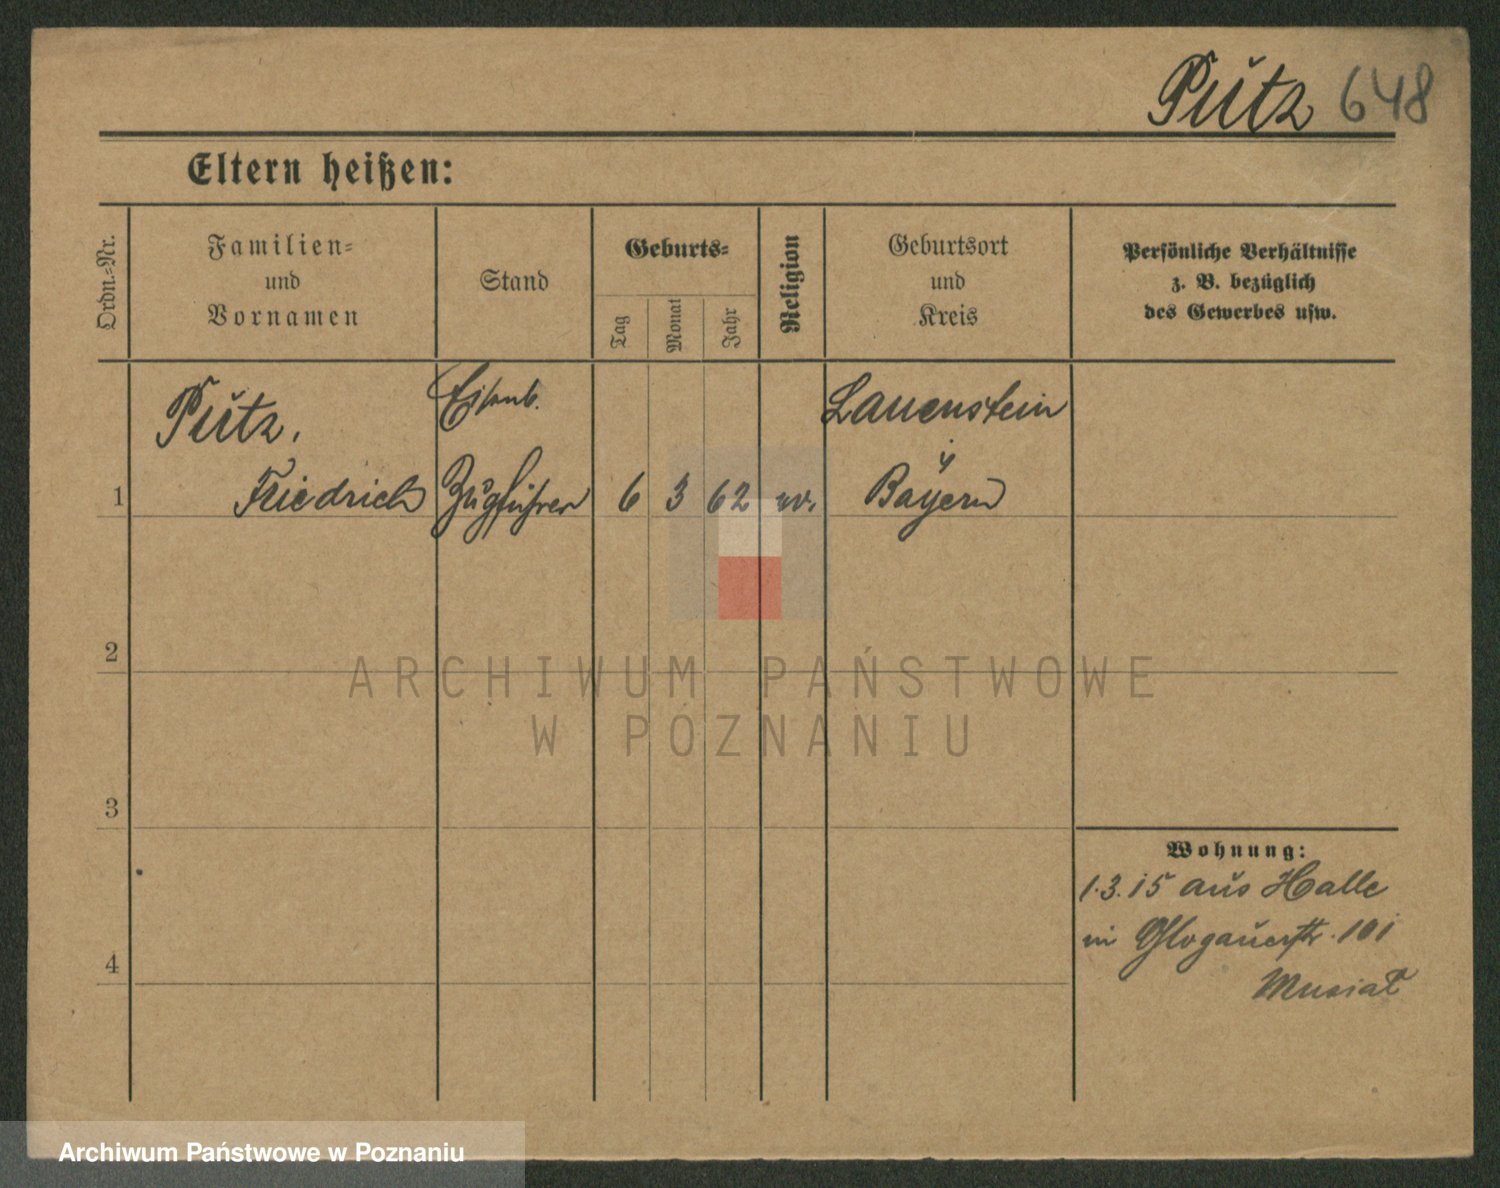 Pütz 648
Eltern heißen:
Ordn.=Nr.
Familien=
und
Vornamen
Stand
Geburts=
Tag
Monat
Jahr
Religion
Geburtsort
und
Kreis
Persönliche Verhältnisse
z. B. bezüglich
des Gewerbes usw.
Pütz,
Friedrich
Eisenb.
Zugführer
6 3 62
Lauenstein
Bayern
1
2
3
4
Wohnung:
1.3.15 aus Halle
in Glogauerstr. 101
ARCHIWUM PAŃSTWOWE
W POZNANIU
Archiwum Państwowe w Poznaniu